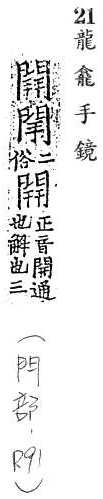 21龍龕手鏡
開閞二俗開正音開通也解也三
(門部,P.91)